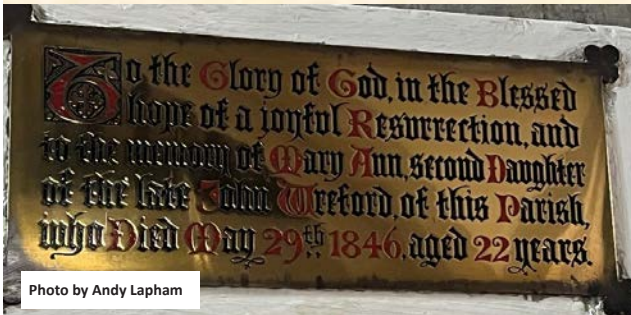 To the Glory of God, in the Blessed
hope of a joyful Resurrection, and
to the memory of Mary Ann, second Daughter
of the late John Wreford, of this Parish,
who Died May 29th 1846, aged 22 years.
Photo by Andy Lapham